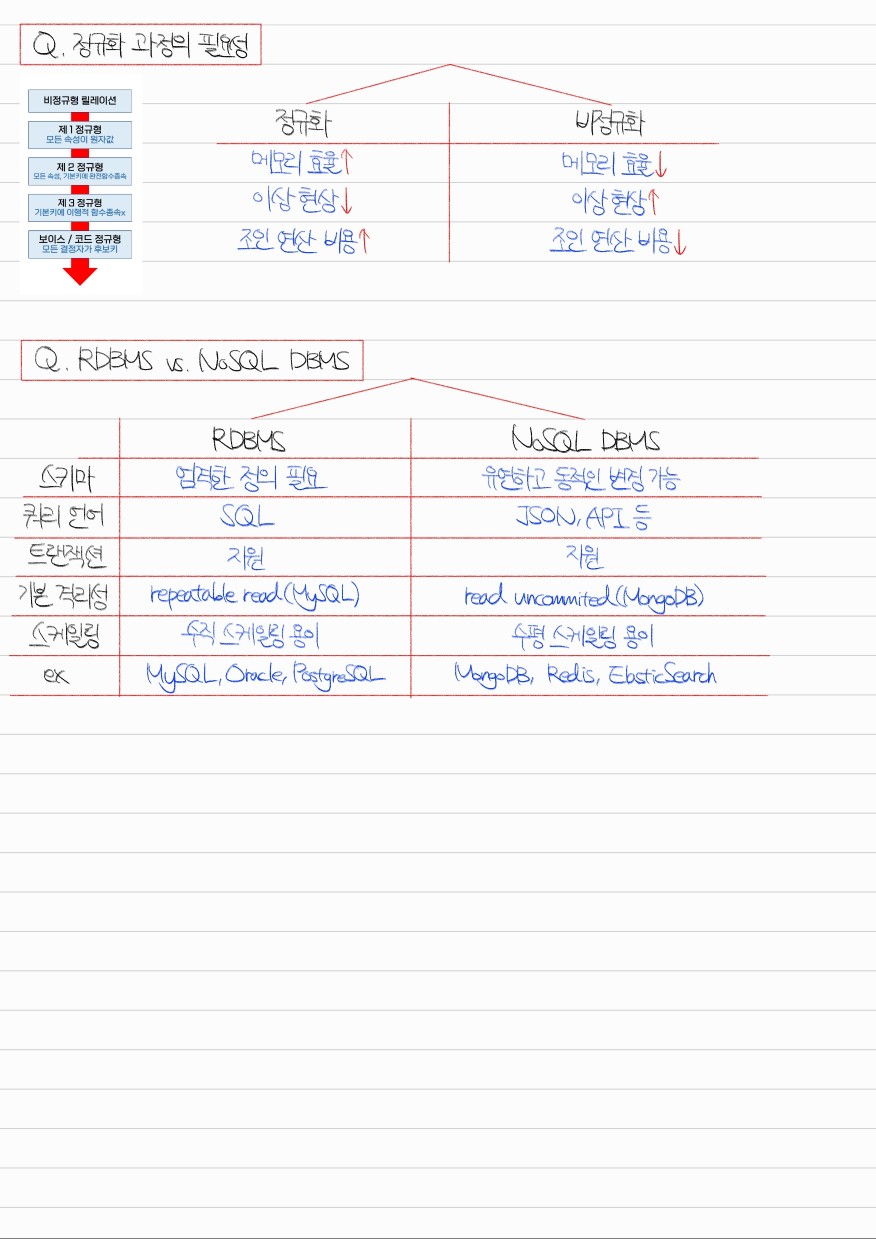 Q. 정규화 과정의 필요성
비정규형 릴레이션
제 1 정규형
모든 속성이 원자값
제 2 정규형
모든 속성, 기본키에 완전함수종속
제 3 정규형
기본키에 이행적 함수종속x
보이스 / 코드 정규형
모든 결정자가 후보키
정규화 비정규화
메모리 효율↑ 메모리 효율↓
이상 현상↓ 이상 현상↑
조인 연산 비용↑ 조인 연산 비용↓
Q. RDBMS vs. NoSQL DBMS
RDBMS NoSQL DBMS
스키마 엄격한 정의 필요 유연하고 동적인 변경 가능
쿼리 언어 SQL JSON, API 등
트랜잭션 지원 지원
기본 격리성 repeatable read(MySQL) read uncommited(MongoDB)
스케일링 수직 스케일링 용이 수평 스케일링 용이
ex MySQL, Oracle, PostgreSQL MongoDB, Redis, ElasticSearch